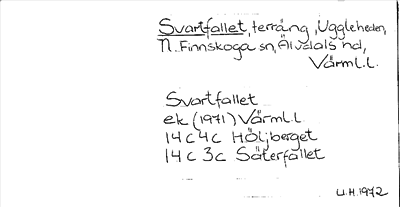 Svartfallet, terräng, Uggleheden,
N. Finnskoga sn, Älvdals hd,
Värml.l.
Svartfallet
ek (1971) Värml.l.
14 C 4c Höljberget
14 C 3c Säterfallet
U.H. 1972